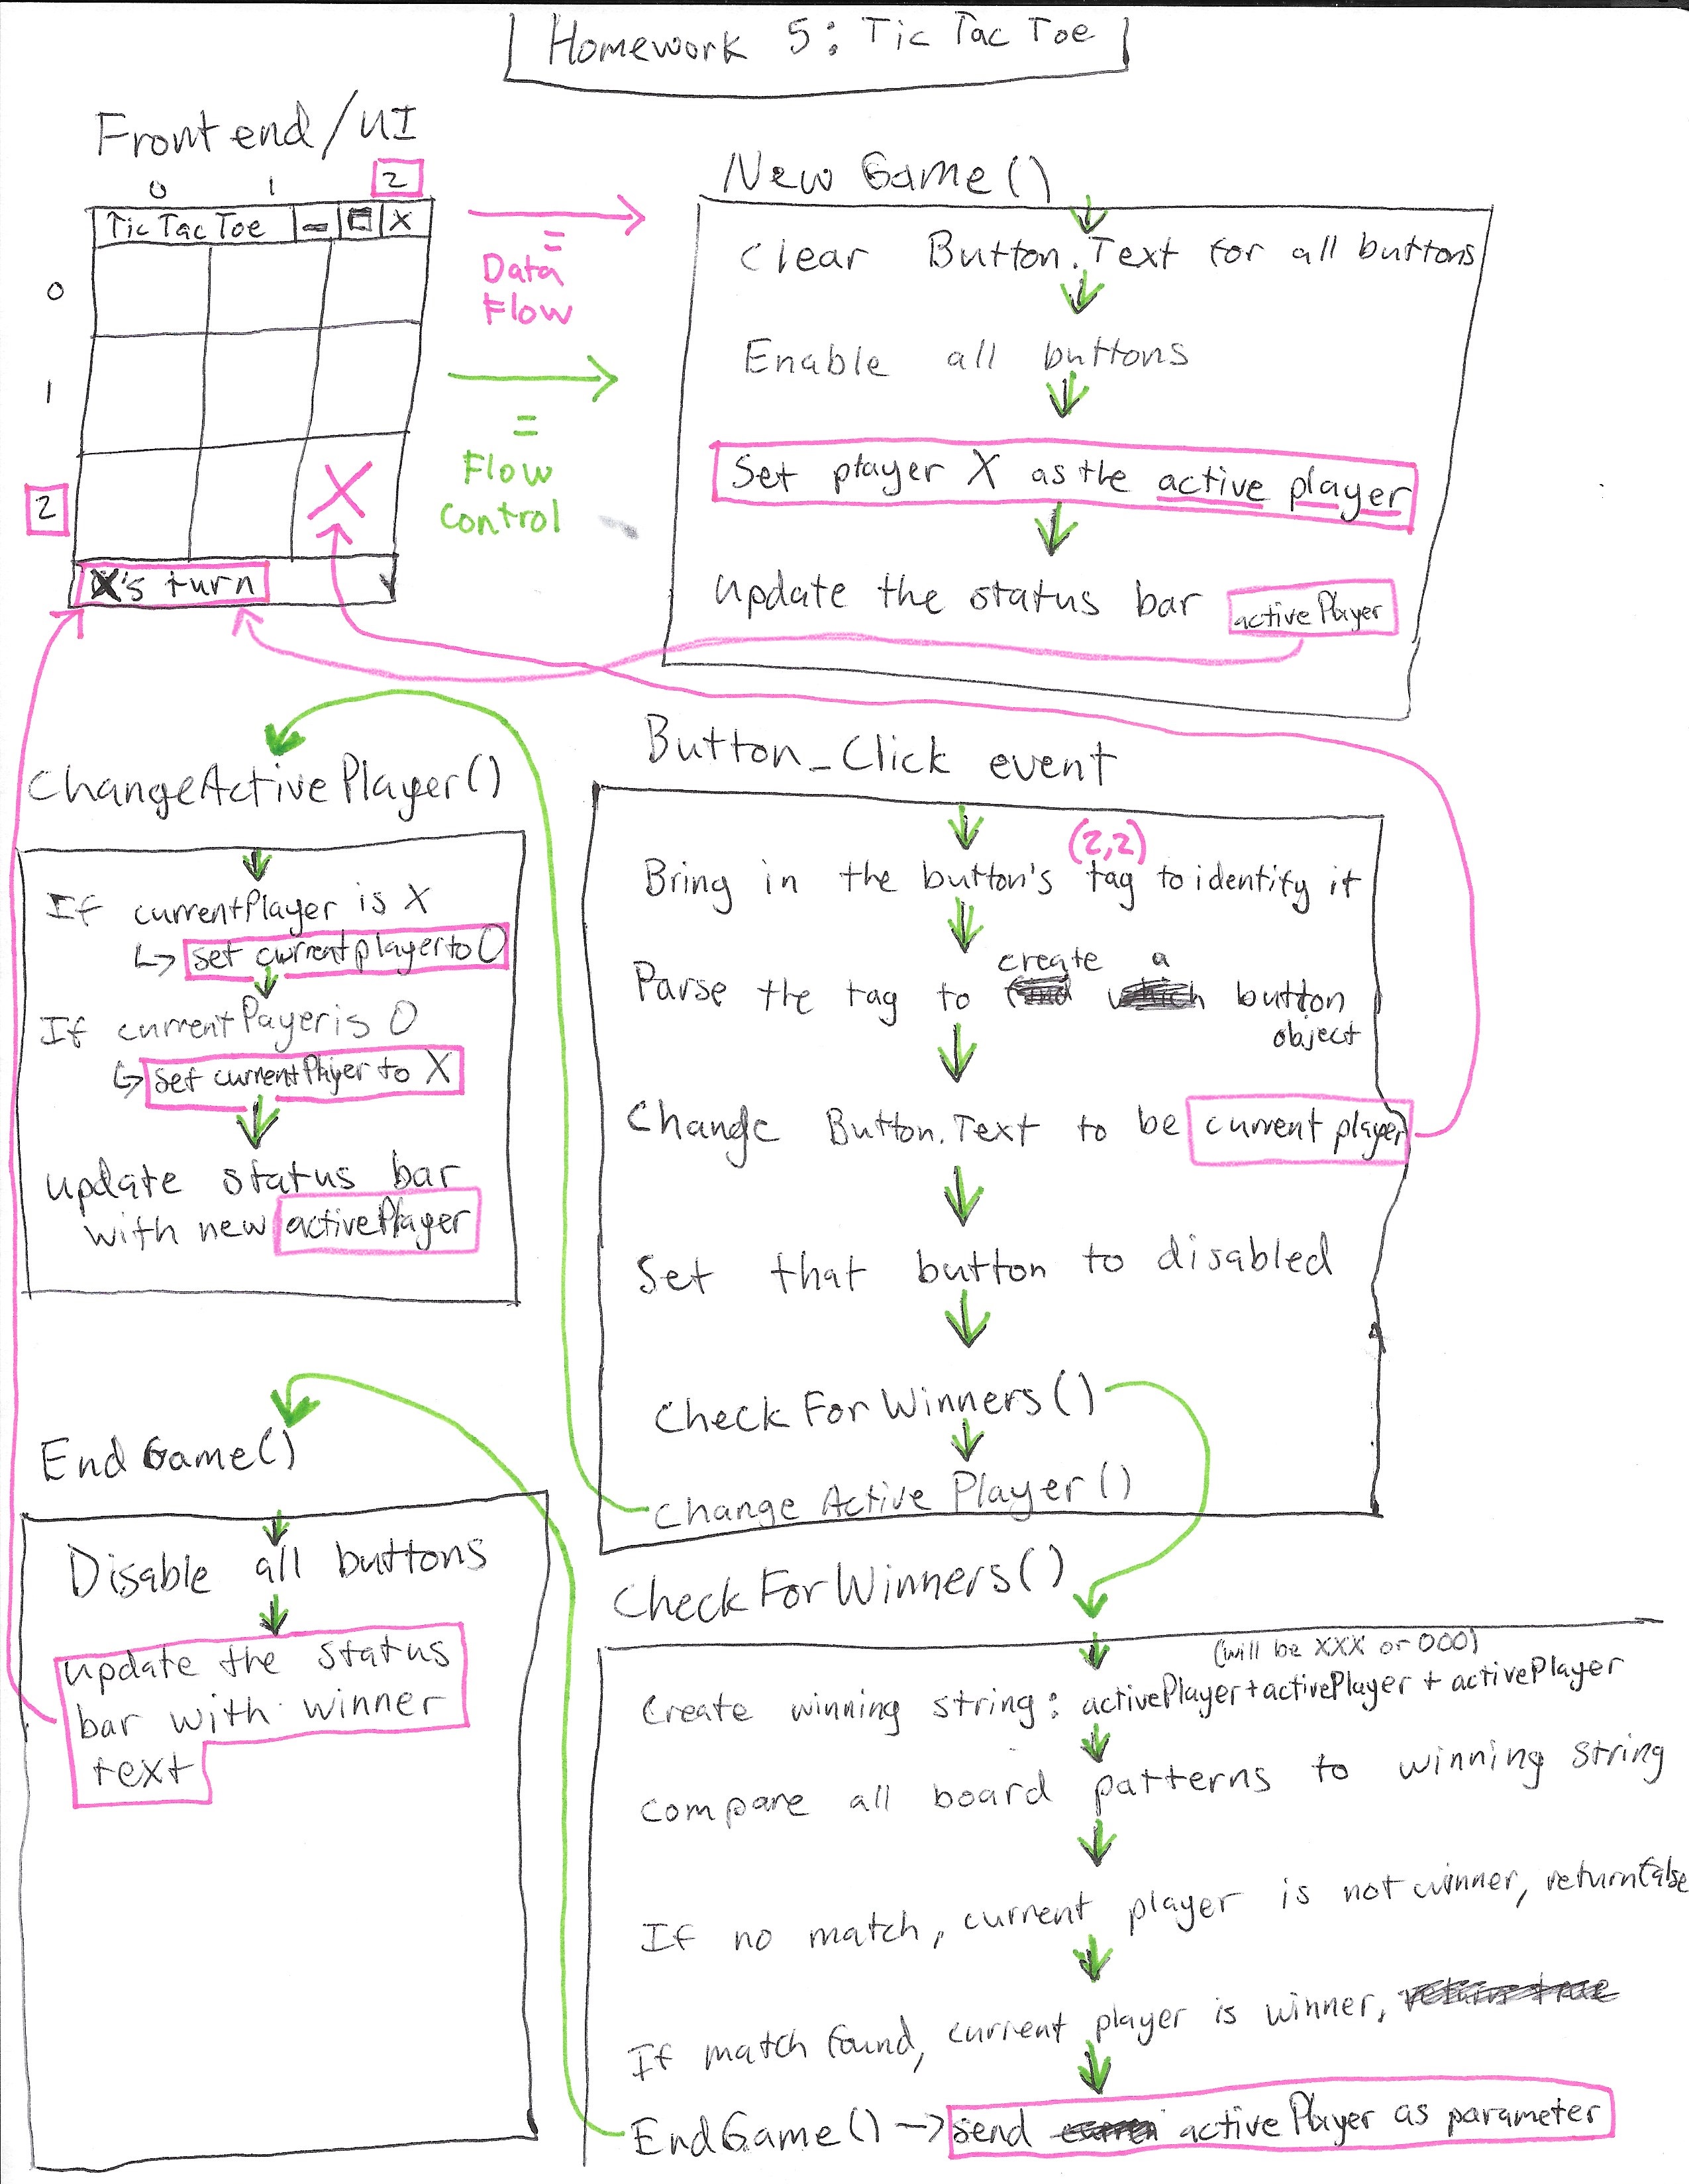 Homework 5: Tic Tac Toe
Front end/UI
0 1 2
Tic Tac Toe X
0
1
2
X
X's turn
=
Data
Flow
=
Flow
Control
New Game()
Clear Button.Text for all buttons
Enable all buttons
Set player X as the active player
update the status bar activePlayer
ChangeActivePlayer()
If currentPlayer is X
set currentplayer to O
If currentPayer is O
set currentPlayer to X
update status bar
with new activePlayer
Button_Click event
(2,2)
Bring in the button's tag to identify it
create a
Parse the tag to button
object
Change Button.Text to be current player
Set that button to disabled
Check For Winners()
Change Active Player()
End Game()
Disable all buttons
update the status
bar with winner
text
Check For Winners()
(will be XXX or OOO)
Create winning string: activePlayer+activePlayer+activePlayer
compare all board patterns to winning string
If no match, current player is not winner, return false
If match found, current player is winner,
EndGame() → send activePlayer as parameter